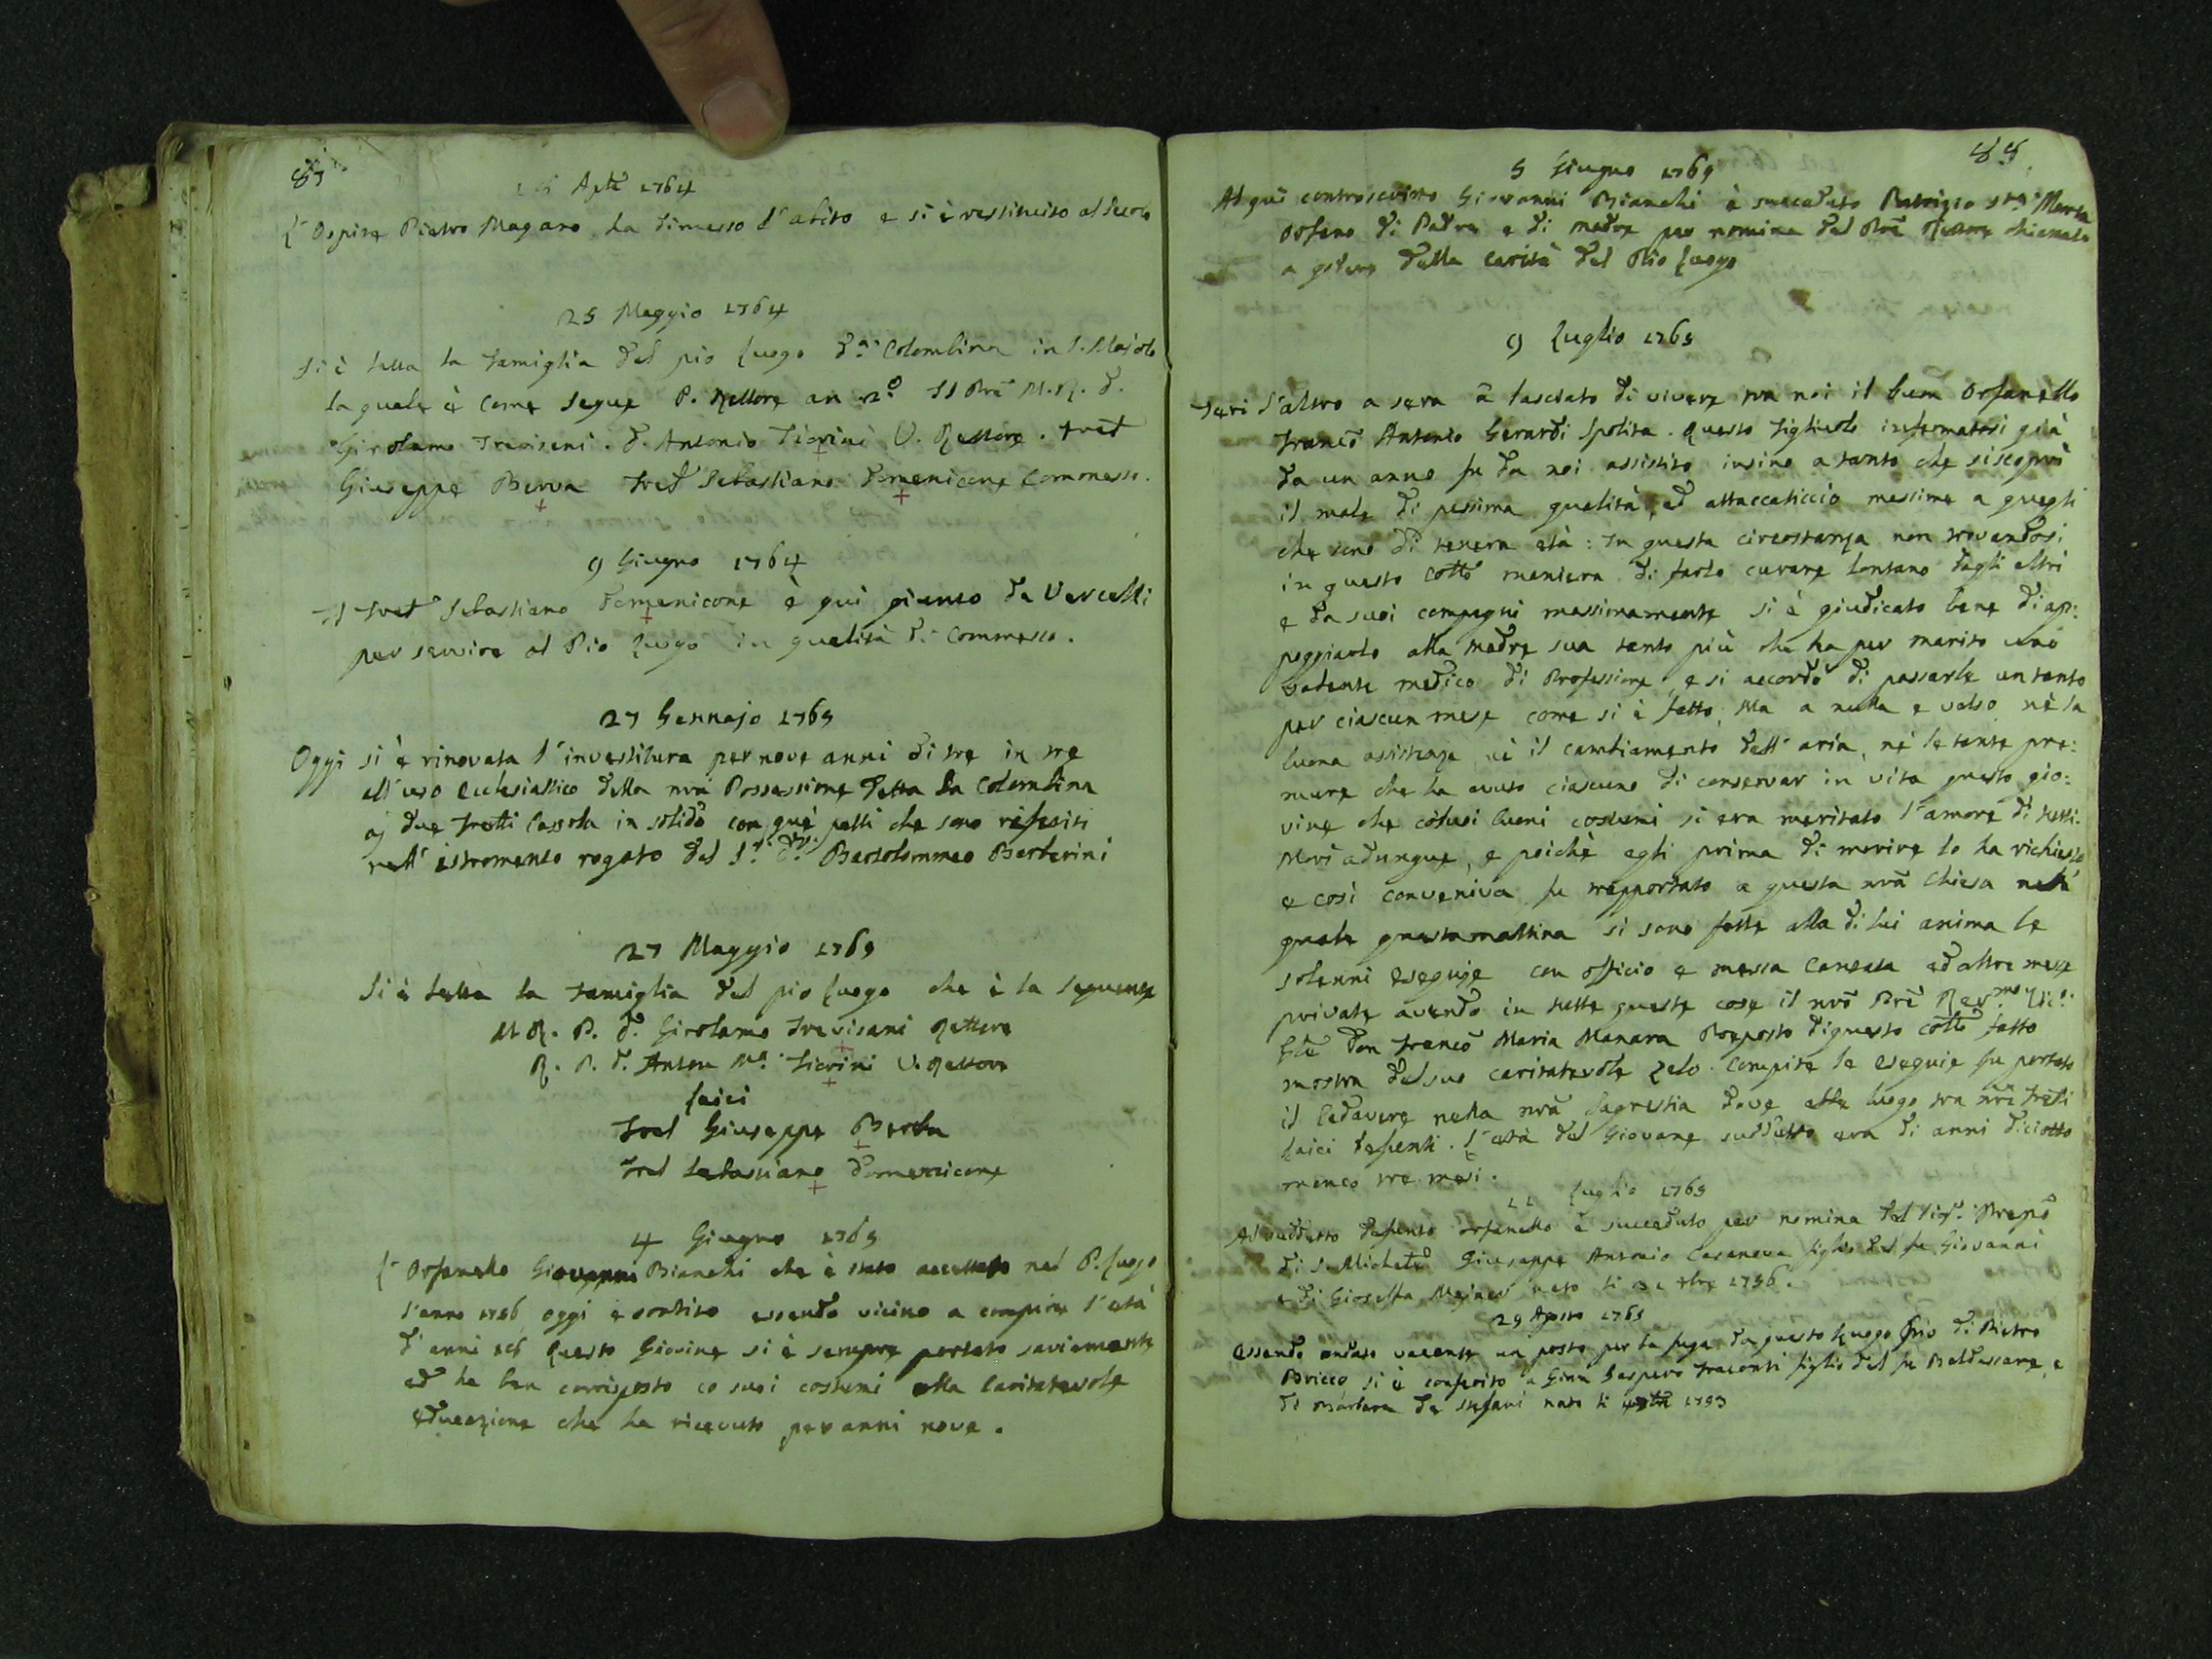 87
Aple 1764
L'Ospite Pietro Magano ha dimesso l'abito e si è restituito al secolo
25 Maggio 1764
Si è letta la famiglia del pio luogo d.a Colombina in S. Majolo
la quale è come segue P. Rettore an 2.o Il Pre M. R. D.
Girolamo Trevisani. D. Antonio Fiorini V. Rettore. Frat
Giuseppe Berva Frat Sebastiano Domenicone Commesso.
9 Giugno 1764
Il Frat Sebastiano Domenicone è qui giunto da Vercelli
per servire al Pio Luogo in qualità di Commesso.
27 Gennajo 1765
Oggi si è rinovata l'investitura per nove anni di tre in tre
all'uso Ecclesiastico della nra Possessione detta la Colombina
aj due Fratti Cassola in solido con què patti che sono riferiti
nell'istromento rogato dal S.r D.r Bartolommeo Barberini
27 Maggio 1765
Si è letta la famiglia del pio luogo che è la seguente
M R. P. D. Girolamo Trevisani Rettore
R. P. D. Anton M.a Fiorini V. Rettore
Laici
Frat Giuseppe Berva
Frat Sebastiano Domenicone
4 Giugno 1765
L'Orfanello Giovanni Bianchi che è stato accettato nel P. Luogo
l'anno 1756 oggi è sortito essendo vicino a compire l'età
d'anni Questo Giovine si è sempre portato saviamente
ed ha ben corrisposto co suoi costumi alla caritatevole
educazione che ha ricevuto per anni nove.
88
5 Giugno 1765
Al qui controscritto Giovanni Bianchi è succeduto Patrizio
orfano di Padre e di madre per nomina del Pre Rettore chiamato
a godere della carità del Pio Luogo
9 Luglio 1765
Jeri l'altro a sera à lasciato di vivere tra noi il buon Orfanello
Franco Antonio Gerardi Spolita. Questo figliuolo infermatosi già
da un anno fu da noi assistito insino a tanto che si scoprì
il male di pessima qualità, ed attaccaticcio massime a quegli
che sono di tenera età: In questa circostanza non trovandosi
in questo Collo maniera di farlo curare lontano dagli altri
e da suoi compagni massimamente si è giudicato bene di ap:
poggiarlo alla madre sua tanto più che ha per marito uno
valente medico di Professione, e si accordò di passarle un tanto
per ciascun mese come si è fatto, Ma a nulla e valso nè la
buona assistenza, nè il cambiamento dell'aria, nè le tante pre:
mure che ha avuto ciascuno di conservar in vita questo gio:
vine che co suoi buoni costumi si era meritato l'amore di tutti.
Morì adunque, e poichè egli prima di morire lo ha richiesto
e così conveniva fu trapportato a questa nra Chiesa nella
quale questa mattina si sono fatte alla di lui anima le
solenni esequie con officio e messa cantata ed altre messe
private avendo in tutte queste cose il nro Pre Rev.mo
Gle Don Franco Maria Manara Proposto di questo Collo fatto
mostra del suo caritatevole zelo. Compite le esequie fu portato
il Cadavere nella nra Sagrestia dove ebbe luogo tra nri Fratti
Laici defunti. L'età del Giovane suddetto era di anni diciotto
manco tre mesi.
11 Luglio 1765
Al suddetto defunto orfanello è succeduto per nomina del Sig.r
di S. Michele Giuseppe Antonio Casanova figlio del fu Giovanni
e di Gioseffa nato li 1756.
29 Agosto 1765
Essendo andato vacante un posto per la fuga da questo Luogo Pio di Pietro
Bricco si è conferito a Gian Gaspero Traconti figlio del fu Baldassare, e
di Barbara De Stefani nato li